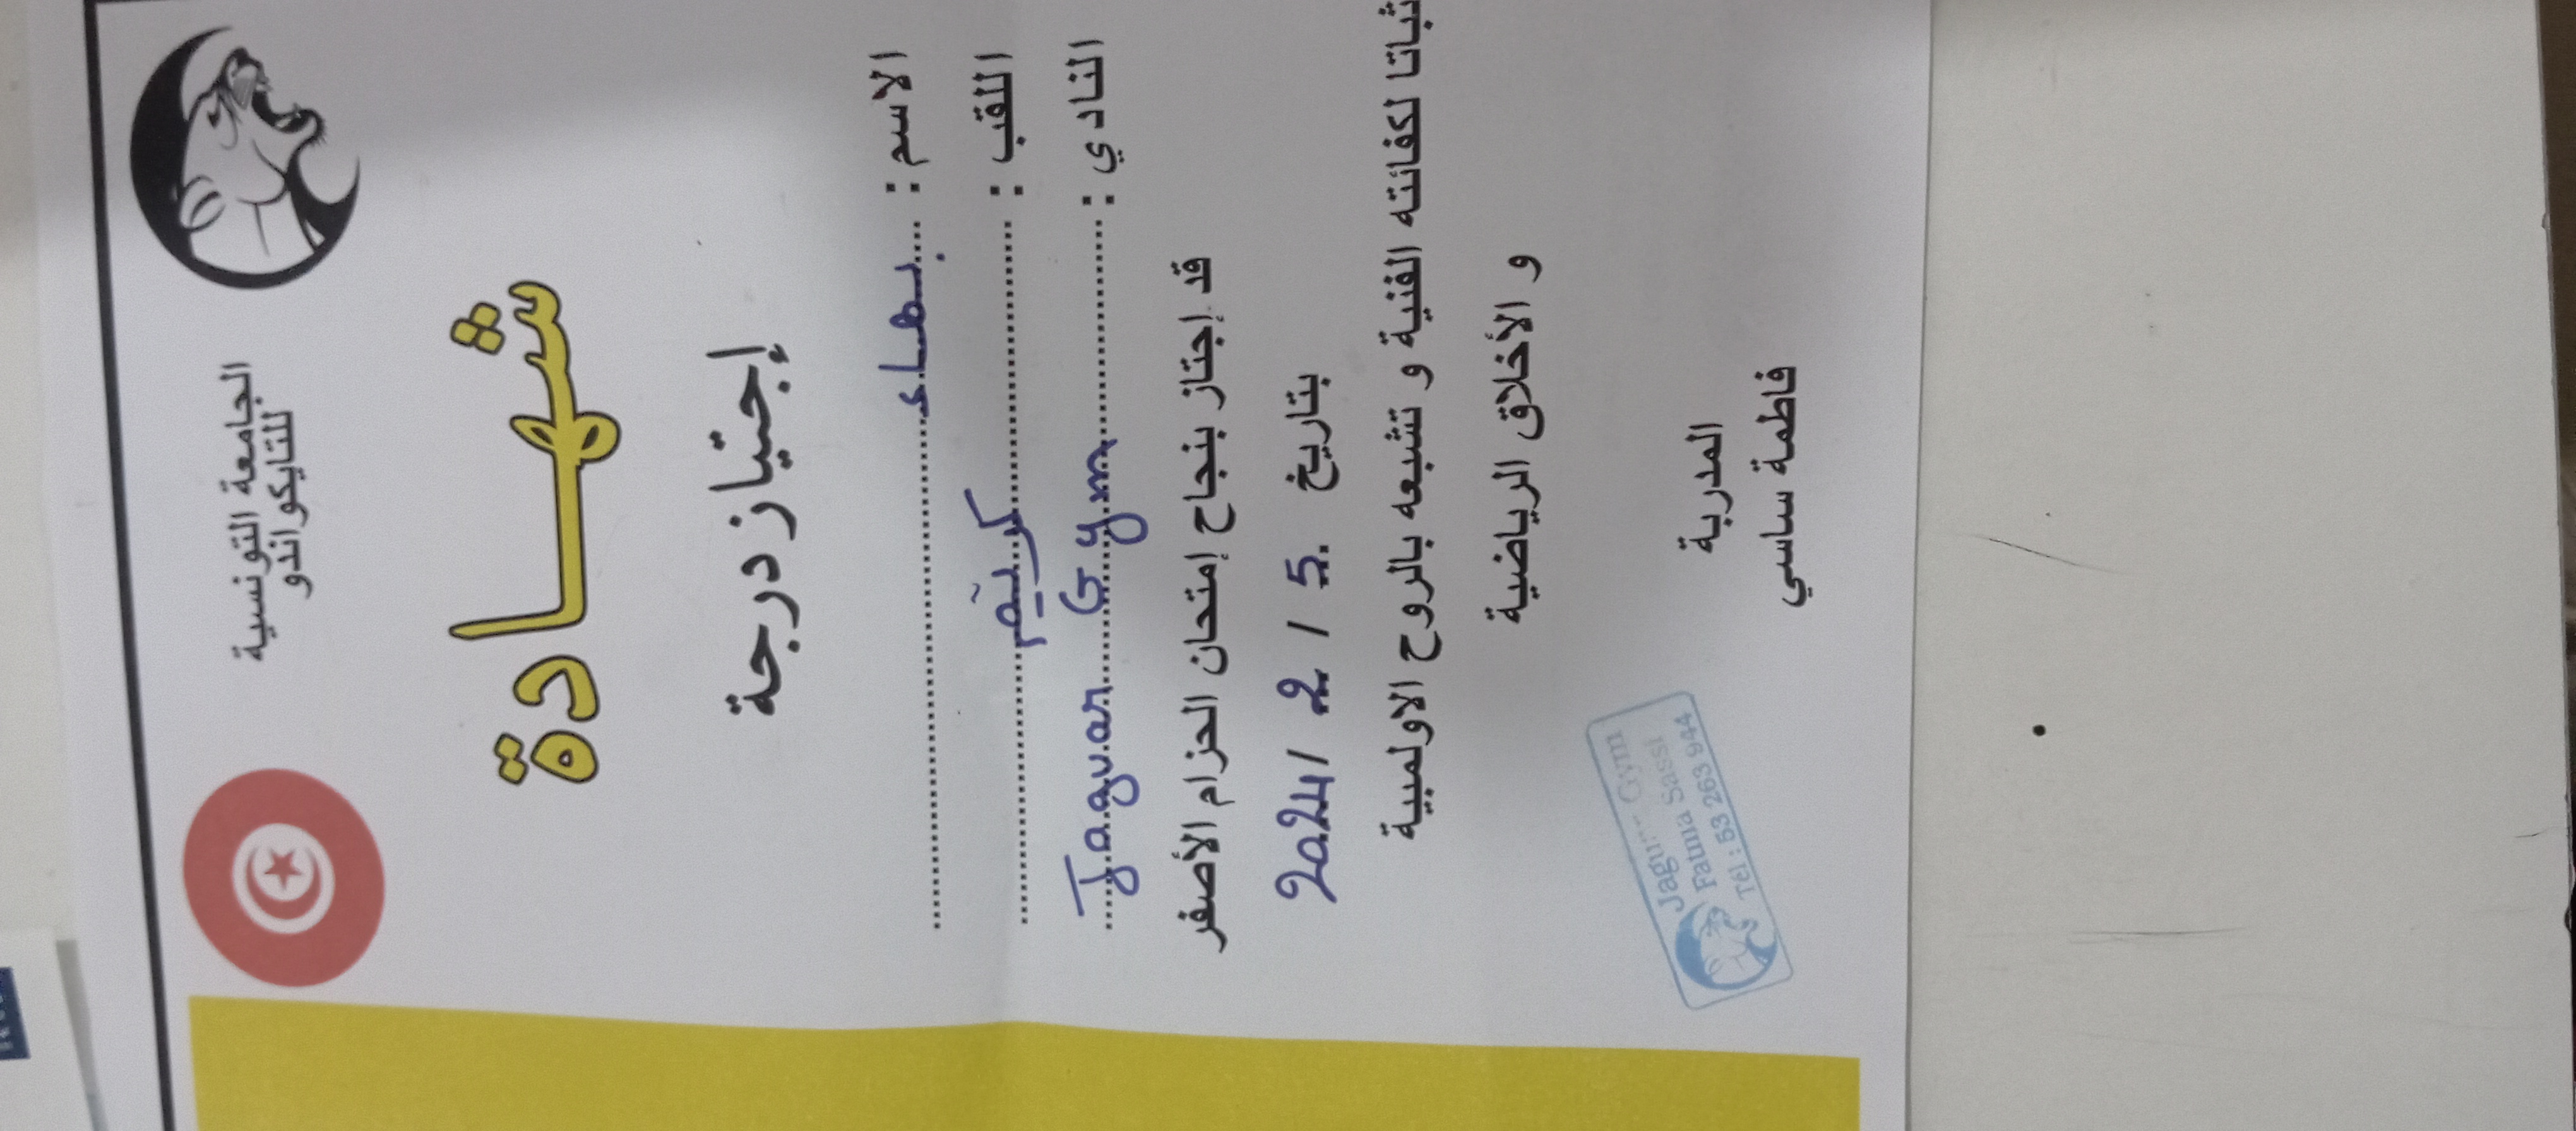 الجامعة التونسية
للتايكواندو
شهادة
إجتياز درجة
الاسم : بهاء
اللقب : كريّم
النادي : Jaguar Gym
قد إجتاز بنجاح إمتحان الحزام الأصفر
بتاريخ 5 / 2 / 2024
ثباتا لكفائته الفنية و تشبعه بالروح الاولمبية
و الأخلاق الرياضية
المدربة
فاطمة ساسي
Gym
Fatma Sassi
Tél : 53 263 944